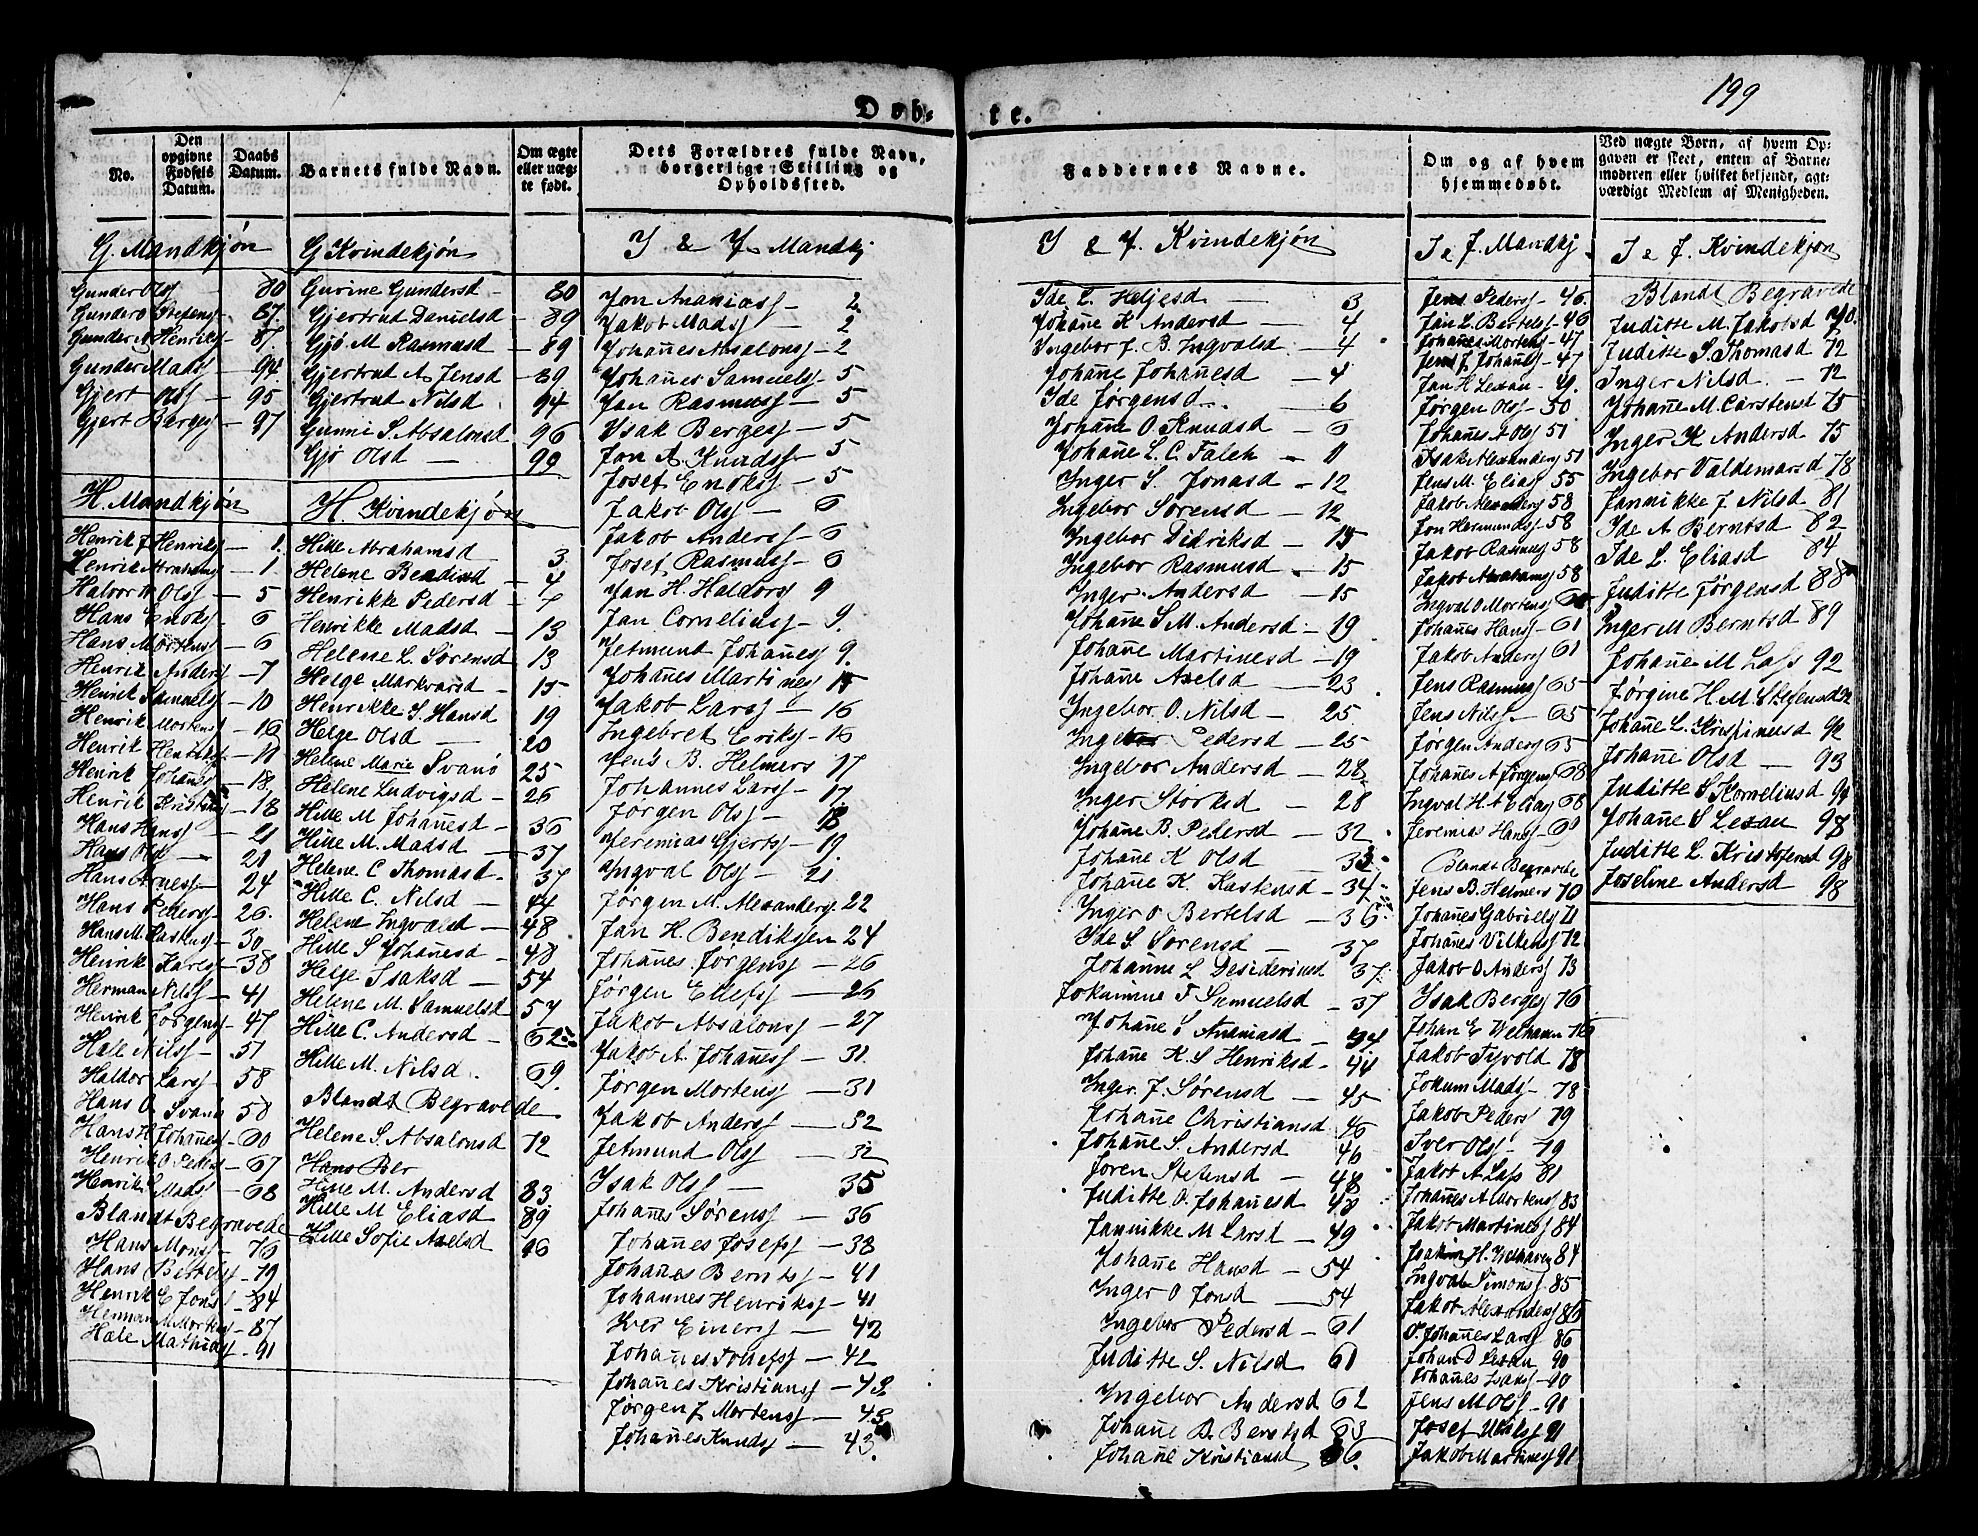 199
Døb-
te.
No.
Den opgivne Fødsels Datum.
Daabs Datum.
Barnets fulde Navn.
Om ægte eller uægte født.
Dets Forældres fulde Navn, borgerlige Stilling og Opholdssted.
Faddernes Navne.
Om og af hvem hjemmedøbt.
Ved uægte Børn, af hvem Opgaven er skeet, enten af Barnemoderen eller hvilket betjende, agtværdigt Medlem af Menigheden.
G. Mandkjøn
Gunder Olsf 80
Gunder Stefensf - 87.
Gunder A Henriksf - 87.
Gunder Madsf - 94.
Gjert Olsf - 95
Gjert Bergesf - 97
H. Mandkjøn
Henrik J Henriksf - 1.
Henrik Abrahamsf - 1
Halvor A Olsf - 5
Hans Enoksf - 6
Hans Mortensf - 6
Henrik Andersf - 7
Henrik Samuelsf - 10
Henrik Mortensf - 16
Henrik Henriksf - 11
Henrik Johansf - 18.
Henrik Kristians - 18
Hans Hansf - 21
Hans Olsf - 21
Hans Arnesf - 24
Hans Pedersf - 26.
Hans M. Kastensf - 30
Henrik Larsf - 38
Herman Nilsf - 41
Henrik Jørgensf - 47
Hale Nilsf - 51
Haldor Larsf - 58
Hans O Svanø 58
Hans H Johanesf - 60
Henrik O Pedersf - 67
Henrik Madsf - 68
Blandt Begravede
Hans Monsf - 76
Hans Bertelsf - 79
Henrik E Jonsf - 84
Herman M Mortensf - 87
Hale Mathiasf - 91
G Kvindekjøn
Gurine Gundersd - 80
Gjertrud Danielsd - 89
Gjø M Rasmusd - 89
Gjertrud A. Jensd - 89
Gjertrud Nilsd. 94
Gunni S. Absalonsd 96
Gjø Olsd - 99
H. Kvindekjøn
Hille Abrahamsd - 3
Helene Bendixsd - 4
Henrikke Pedersd - 7
Henrikke Madsd - 13
Helene L. Sørensd 13
Helge Markvarsd - 15
Henrikke S. Hansd 19
Helge Olsd - 20
Helene Marie Svanø 25
Helene Ludvigsd - 26
Hille M Johanesd - 36
Hille M. Madsd - 37
Helene C Thomasd - 37
Hille C. Nilsd - 44
Helene Ingvalsd - 48
Hille S Johanesd - 48
Helge Isaksd - 54
Helene M. Samuelsd 57
Hille C. Andersd - 62
Hille M. Nilsd. 69
Blandt Begravede
Helene S. Absalonsd 72
Hans Ber
Hille M. Andersd 83
Hille M Eliasd 89
Hille Sofie Axelsd 96
I & J. Mandkj
Jan Ananiasf - 2
Jakob Madsf - 2
Johanes Absalonsf - 2
Johanes Samuelsf - 5
Jan Rasmusf - 5
Isak Bergesf - 5
Jan A. Knudsf - 5
Josef Enoksf - 5
Jakob Olsf - 6
Jakob Andersf - 6
Josef Rasmusf - 6
Jan H. Haldorsf 9
Jan Corneliusf - 9.
Jetmund Johanesf 9.
Johanes Martinesf 15
Jakob Larsf - 16
Ingebret Eriksf - 16
Jens B. Helmers 17
Johannes Larsf - 17
Jørgen Olsf - 18
Jeremias Gjertsf - 19
Ingval Olsf - 21.
Jørgen M. Alexandersf. 22
Jan H. Bendiksen 24
Johanes Jørgensf - 26
Jørgen Ellefsf - 26
Jakob Absalonsf - 27
Jakob A. Johanesf - 31.
Jørgen Mortensf - 31
Jakob Andersf - 32
Jetmund Olsf - 32
Isak Olsf - 35
Johanes Sørensf - 36
Johanes Josefsf - 38
Johanes Berntsf - 41
Johannes Henriksf - 41
Iver Einersf - 42
Johanes Tollefsf - 42
Johanes Kristiansf - 43
Jørgen J Mortensf - 43
Johanes Knudsf - 43.
I & J. Kvindekjøn
Ide L. Heljesd - 3
Johane K Andersd - 4
Ingebor J. B. Ingvalsd - 4
Johane Johanesd - 4
Ide Jørgensd - 6
Johane O. Knudsd - 6
Johane L. C. Falch - 11
Inger S. Jonasd - 12
Ingebor Sørensd - 12
Ingebor Didriksd - 15
Ingebor Rasmusd - 15
Inger Andersd - 15
Johane S M. Andersd - 19
Johane Martinesd - 19
Johane Axelsd - 23
Ingebor O. Nilsd - 25
Ingebor Pedersd - 25
Ingebor Andersd - 28
Inger Storksd - 28
Johane B. Pedersd - 32
Johane K Olsd 33
Johane K. Kastensd - 34
Inger O Bertelsd - 36
Ide S Sørensd - 37
Johanne L Desideriusd 37
Jokumine F Samuelsd - 37
Johane S Ananiasd - 44
Johane K. S Henriksd - 44
Inger J. Sørensd - 45
Johane Christiansd 46
Johane S. Andersd 46
Joren Stefensd - 48
Juditte O. Johanesd 48
Jannikke M Larsd - 49
Johane Hansd - 54
Inger O Jonsd - 54
Ingebor Pedersd - 61
Juditte S. Nilsd 61
Ingebor Andersd 62
Johane B. Berntsd 63
Johane Kristiansd 66.
I & J. Mandkj
Jens Pedersf - 46.
Jan L. Bertelsf - 46
Johanes Mortensf - 47
Jens J. Johanesf - 47
Jan H Lexau - 49
Jørgen Olsf - 50
Johanes A Olsf 51
Isak Alexandersf 51
Jens M. Eliasf 55
Jakob Alexandersf 58
Jon Hermundsf 58
Jakob Rasmusf 58
Jakob Abrahamsf 58
Ingval O Mortensf 60
Johanes Hansf - 61
Jakob Andersf 61
Jens Rasmusf 65
Jens Nilsf - 65
Jørgen Andersf 65
Johanes A Jørgensf 68
Ingval H A Eliasf 68
Jeremias Hansf - 69
Blandt Begravede
Jens B. Helmers 70
Johanes Gabrielsf 71
Johanes Vilkensf 72
Jakob O Andersf 73
Isak Bergesf 76
Johan E Welhaven 76
Jakob Tyvold 78
Jokum Madsf - 78
Jakob Pedersf 79
Iver Olsf - 79
Jakob A Lasf 81
Johanes A Mortensf 83
Jakob Martinesf 84
Joakim H. Welhaven 84
Ingval Simonsf 85
Jakob Alexandersf 86
P. Johanes Larsf 86
Johan D Lexau 90
Johanes Isaksf - 90
Jens M Olsf - 91
Josef Nilsf 91
Jakob Martinesf 91
I & J. Kvindekjøn
Blandt Begravede
Juditte M. Jakobsd 70.
Juditte S. Thomasd 72
Inger Nilsd - 72
Johane M. Carstensd 75
Inger K Andersd 75
Ingebor Valdemarsd 78
Jannikke J Nilsd 81
Ide A Berntsd 82
Ide L. Eliasd 84
Juditte Jørgensd 88
Inger M Berntsd 89
Johane M Lass 92
Jørgine H. M. Stefensd 92
Johane L. Krispinusd 92
Johane Olsd - 93
Juditte S Korneliusd 94
Johane S Lexau 98
Juditte L. Kristofersd 98
Joseline Andersd 98